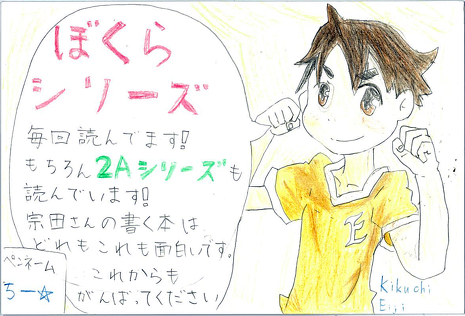 ぼくら
シリーズ
毎回読んでます!
もちろん2Aシリーズも
読んでいます!
宗田さんの書く本は
どれもこれも面白いです。
これからも
がんばってください
ペンネーム
ちー☆
E
Kikuchi
Eiji